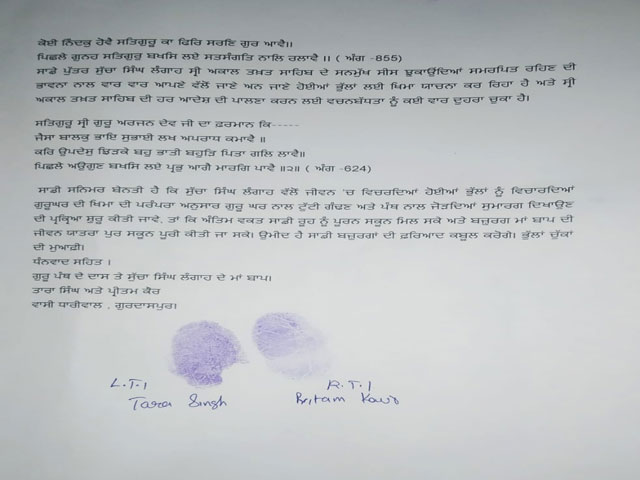 ਕੋਈ ਨਿੰਦਕੁ ਹੋਵੈ ਸਤਿਗੁਰੂ ਕਾ ਫਿਰਿ ਸਰਣਿ ਗੁਰ ਆਵੈ॥
ਪਿਛਲੇ ਗੁਨਹ ਸਤਿਗੁਰੁ ਬਖਸਿ ਲਏ ਸਤਸੰਗਤਿ ਨਾਲਿ ਰਲਾਵੈ ॥ ( ਅੰਗ -855)
ਸਾਡੇ ਪੁੱਤਰ ਸੁੱਚਾ ਸਿੰਘ ਲੰਗਾਹ ਸ੍ਰੀ ਅਕਾਲ ਤਖ਼ਤ ਸਾਹਿਬ ਦੇ ਸਨਮੁੱਖ ਸੀਸ ਝੁਕਾਉਂਦਿਆਂ ਸਮਰਪਿਤ ਰਹਿਣ ਦੀ
ਭਾਵਨਾ ਨਾਲ ਵਾਰ ਵਾਰ ਆਪਣੇ ਵੱਲੋਂ ਜਾਣੇ ਅਨ ਜਾਣੇ ਹੋਈਆਂ ਭੁੱਲਾਂ ਲਈ ਖਿਮਾ ਯਾਚਨਾ ਕਰ ਰਿਹਾ ਹੈ ਅਤੇ ਸ੍ਰੀ
ਅਕਾਲ ਤਖ਼ਤ ਸਾਹਿਬ ਦੀ ਹਰ ਆਦੇਸ਼ ਦੀ ਪਾਲਣਾ ਕਰਨ ਲਈ ਵਚਨਬੱਧਤਾ ਨੂੰ ਕਈ ਵਾਰ ਦੁਹਰਾ ਚੁਕਾ ਹੈ।
ਸਤਿਗੁਰੂ ਸ੍ਰੀ ਗੁਰੂ ਅਰਜਨ ਦੇਵ ਜੀ ਦਾ ਫ਼ਰਮਾਨ ਕਿ-----
ਜੈਸਾ ਬਾਲਕੁ ਭਾਇ ਸੁਭਾਈ ਲਖ ਅਪਰਾਧ ਕਮਾਵੈ ॥
ਕਰਿ ਉਪਦੇਸੁ ਝਿੜਕੇ ਬਹੁ ਭਾਤੀ ਬਹੁੜਿ ਪਿਤਾ ਗਲਿ ਲਾਵੈ॥
ਪਿਛਲੇ ਅਉਗੁਣ ਬਖਸਿ ਲਏ ਪ੍ਰਭੁ ਆਗੈ ਮਾਰਗਿ ਪਾਵੈ ॥੨॥ ( ਅੰਗ -624)
ਸਾਡੀ ਸਨਿਮਰ ਬੇਨਤੀ ਹੈ ਕਿ ਸੁੱਚਾ ਸਿੰਘ ਲੰਗਾਹ ਵੱਲੋਂ ਜੀਵਨ 'ਚ ਵਿਚਰਦਿਆਂ ਹੋਈਆਂ ਭੁੱਲਾਂ ਨੂੰ ਵਿਚਾਰਦਿਆਂ
ਗੁਰੂਘਰ ਦੀ ਖਿਮਾ ਦੀ ਪਰੰਪਰਾ ਅਨੁਸਾਰ ਗੁਰੂ ਘਰ ਨਾਲ ਟੁੱਟੀ ਗੰਢਣ ਅਤੇ ਪੰਥ ਨਾਲ ਜੋੜਦਿਆਂ ਸੁਮਾਰਗ ਦਿਖਾਉਣ
ਦੀ ਪ੍ਰਕ੍ਰਿਆ ਸ਼ੁਰੂ ਕੀਤੀ ਜਾਵੇ, ਤਾਂ ਕਿ ਅੰਤਿਮ ਵਕਤ ਸਾਡੀ ਰੂਹ ਨੂੰ ਪੂਰਨ ਸਕੂਨ ਮਿਲ ਸਕੇ ਅਤੇ ਬਜ਼ੁਰਗ ਮਾਂ ਬਾਪ ਦੀ
ਜੀਵਨ ਯਾਤਰਾ ਪੁਰ ਸਕੂਨ ਪੂਰੀ ਕੀਤੀ ਜਾ ਸਕੇ। ਉਮੀਦ ਹੈ ਸਾਡੀ ਬਜ਼ੁਰਗਾਂ ਦੀ ਫ਼ਰਿਆਦ ਕਬੂਲ ਕਰੋਗੇ। ਭੁੱਲਾਂ ਚੁੱਕਾਂ
ਦੀ ਮੁਆਫ਼ੀ।
ਧੰਨਵਾਦ ਸਹਿਤ ।
ਗੁਰੂ ਪੰਥ ਦੇ ਦਾਸ ਤੇ ਸੁੱਚਾ ਸਿੰਘ ਲੰਗਾਹ ਦੇ ਮਾਂ ਬਾਪ।
ਤਾਰਾ ਸਿੰਘ ਅਤੇ ਪ੍ਰੀਤਮ ਕੌਰ
ਵਾਸੀ ਧਾਰੀਵਾਲ , ਗੁਰਦਾਸਪੁਰ।
L.T.I R.T.I
Tara Singh Pritam Kaur